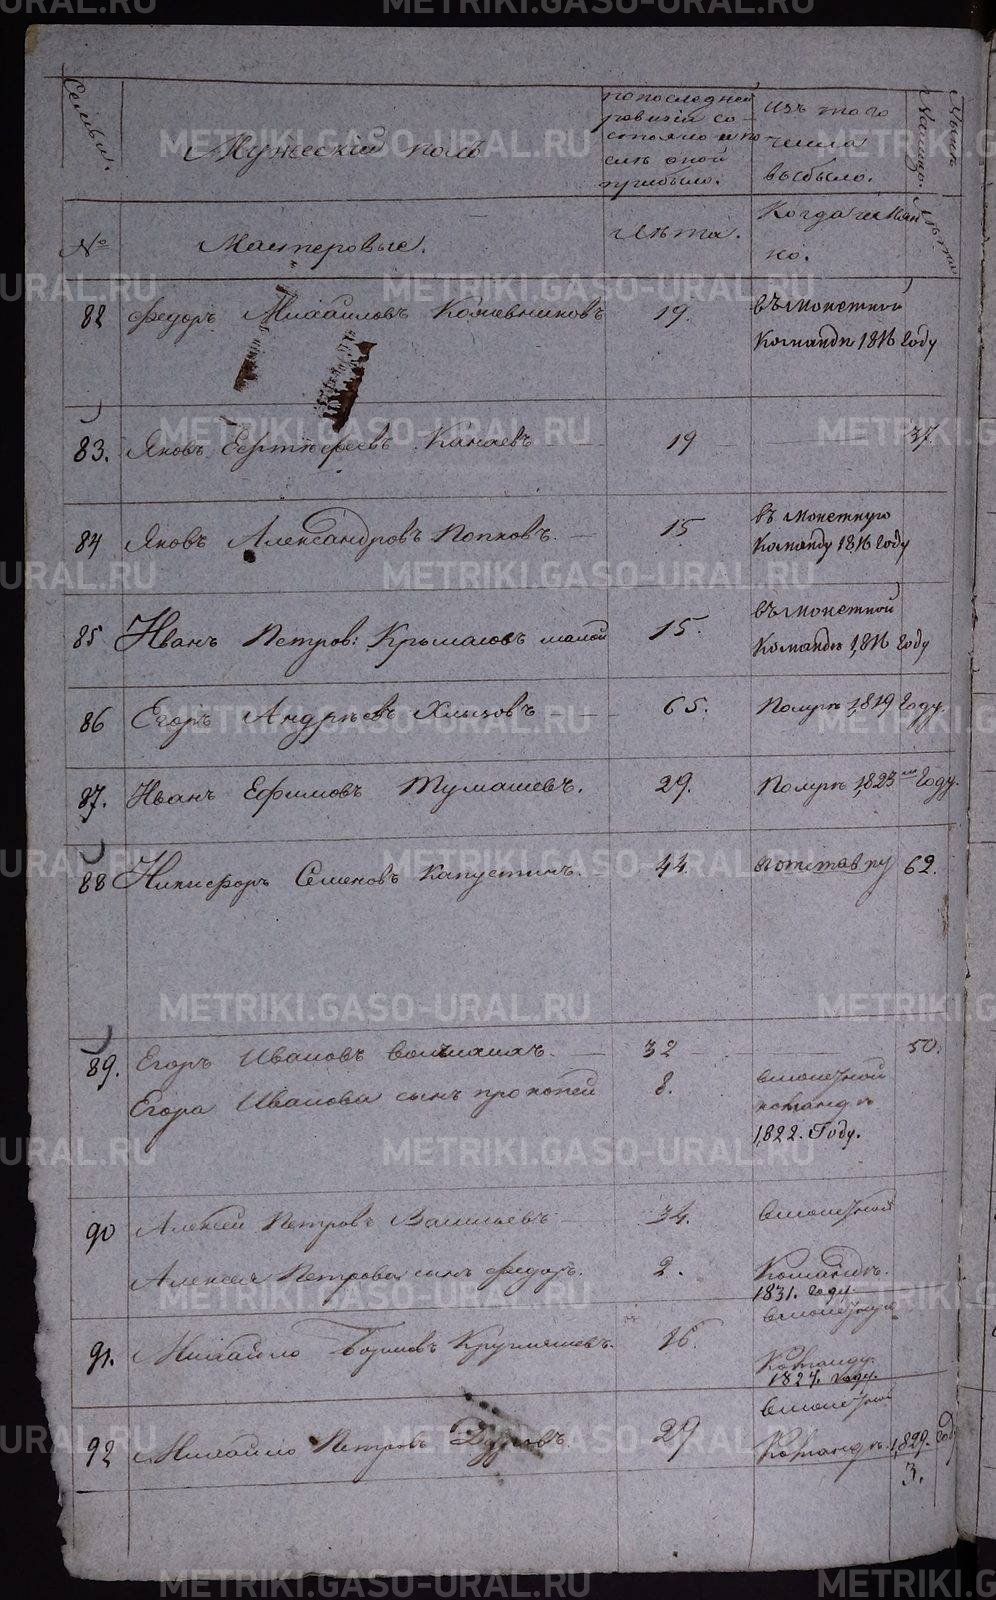 Семьи.
Мужеский полъ
по последней
ревизіи со-
стояло и по
слѣ оной
прибыло.
изъ того
числа
выбыло.
Нынѣ
Налицо.
№
Мастеровые.
Лѣта.
Когда имян
но.
Лѣта
82 Федоръ Михайловъ Кожевниковъ 19. въ монетной
командѣ 1816 году
83. Яковъ Канаевъ 19 37.
84 Яковъ Александровъ Попковъ. 15 въ монетную
команду 1816 году
85 Иванъ Петров: малой 15. въ монетной
командѣ 1,816 году
86 Егоръ Андрѣевъ Хлызовъ 65. Помръ 1,819 году.
87. Иванъ Ефимовъ Тумашевъ. 29. Помръ 1,823 году.
88 Никифоръ Семеновъ Капустинъ. 44. вотставку 62.
89. Егоръ Ивановъ 32 50.
Егора Иванова сынъ прокопей 8. вмонетной
командѣ
1,822. Году.
90 Алексей Петровъ Васильевъ 34. вмонетной
Алексея Петрова сынъ федоръ. 2. Командѣ.
1831. году.
91. Михайло 16. вмонетную
Команду.
1827. году.
92 Михайло Петровъ 29 вмонетной
Командѣ. 1,829. году
3.
METRIKI.GASO-URAL.RU